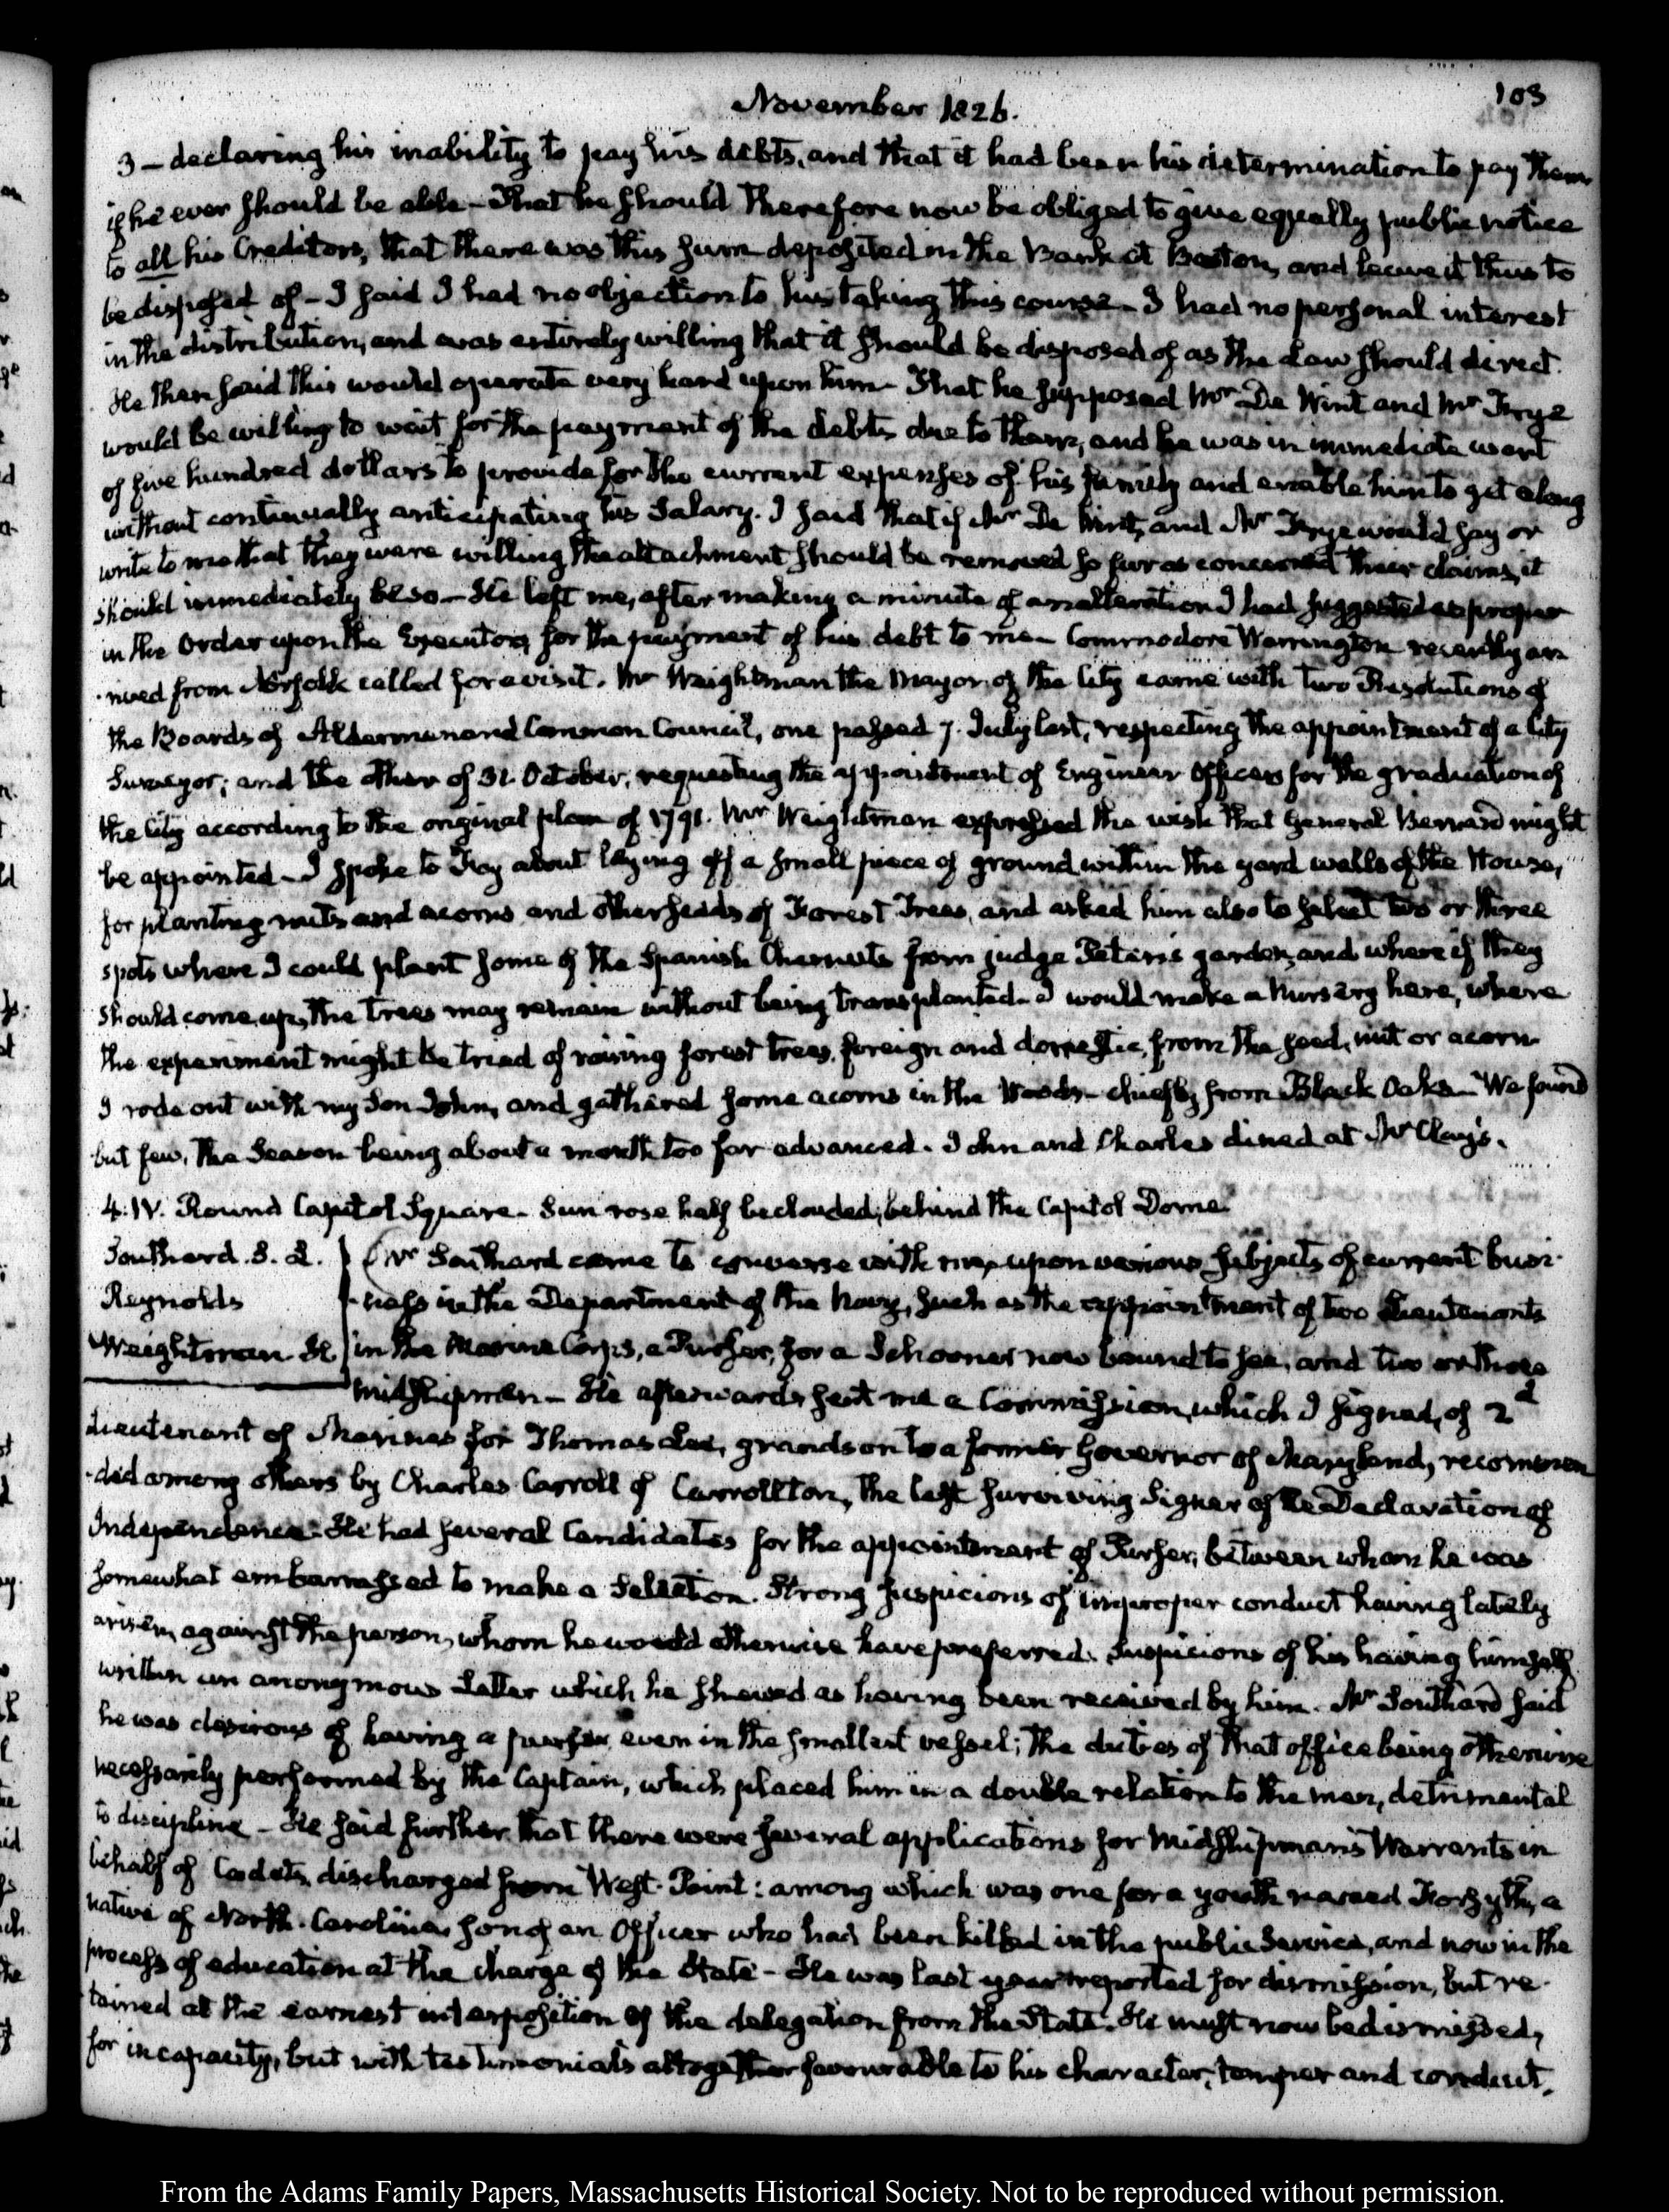 November 1826.
103
3 – declaring his inability to pay his debts, and that it had been his determination to pay them
if he ever should be able – That he should therefore now be obliged to give equally public notice
to all his Creditors, that there was this sum deposited in the Bank at Boston, and leave it thus to
be disposed of – I said I had no objection to his taking this course – I had no personal interest
in the distribution, and was entirely willing that it should be disposed of as the Law should direct.
He then said this would operate very hard upon him – That he supposed Mr De Wint and Mr Frye
would be willing to wait for the payment of the debts due to them, and he was in immediate want
of five hundred dollars to provide for the current expenses of his family and enable him to get along
without continually anticipating his Salary. I said that if Mr De Wint, and Mr Frye would say or
write to me that they were willing the attachment should be removed so far as concerned their claims, it
should immediately be so – He left me, after making a minute of an alteration I had suggested as proper
in the Order upon the Executors for the payment of his debt to me – Commodore Warrington recently ar
rived from Norfolk called for a visit. Mr Weightman the Mayor of the City came with two Resolutions of
the Boards of Aldermen and Common Council, one passed 7. July last, respecting the appointment of a City
Surveyor; and the other of 31. October, requesting the appointment of Engineer Officers for the graduation of
the City according to the original plan of 1791. Mr Weightman expressed the wish that General Bernard might
be appointed – I spoke to Foy about laying off a small piece of ground within the yard walls of the House,
for planting nuts and acorns and other seeds of Forest Trees, and asked him also to select two or three
spots where I could plant some of the Spanish Chesnuts from judge Peters's garden, and where if they
should come up, the trees may remain without being transplanted – I would make a Nursery here, where
the experiment might be tried of raising forest trees, foreign and domestic, from the seed, nut or acorn
I rode out with my Son John, and gathered some acorns in the Woods – chiefly from Black Oaks – We found
but few, the Season being about a month too far advanced. John and Charles dined at Mr Clay's.
4. IV. Round Capitol Square – Sun rose half beclouded, behind the Capitol Dome.
Southard. S. L.
Reynolds
Weightman
Mr Southard came to converse with me, upon various subjects of current busi-
ness in the Department of the Navy, such as the appointment of two Lieutenants
in the Marine Corps, a Purser, for a Schooner now bound to sea, and two or three
midshipmen – He afterwards sent me a Commission, which I signed, of 2d
Lieutenant of Marines for Thomas Lee, grandson to a former Governor of Maryland, recommen
ded among others by Charles Carroll of Carrollton, the last surviving Signer of the Declaration of
Independence. He had several Candidates for the appointment of Purser, between whom he was
somewhat embarrassed to make a Selection. Strong suspicions of improper conduct having lately
arisen, against the person, whom he would otherwise have preferred. Suspicions of his having himself
written an anonymous Letter which he shewed as having been received by him. Mr Southard said
he was desirous of having a purser even in the smallest vessel; the duties of that office being otherwise
necessarily performed by the Captain, which placed him in a double relation to the men, detrimental
to discipline – He said further that there were several applications for Midshipman's Warrants in
behalf of Cadets discharged from West-Point: among which was one for a youth named Forsyth, a
native of North-Carolina, son of an Officer who had been killed in the public Service, and now in the
process of education at the charge of the State – He was last year reported for dismission, but re-
tained at the earnest interposition of the delegation from the State. He must now be dismissed,
for incapacity, but with testimonials altogether favourable to his character, temper and conduct.
From the Adams Family Papers, Massachusetts Historical Society. Not to be reproduced without permission.